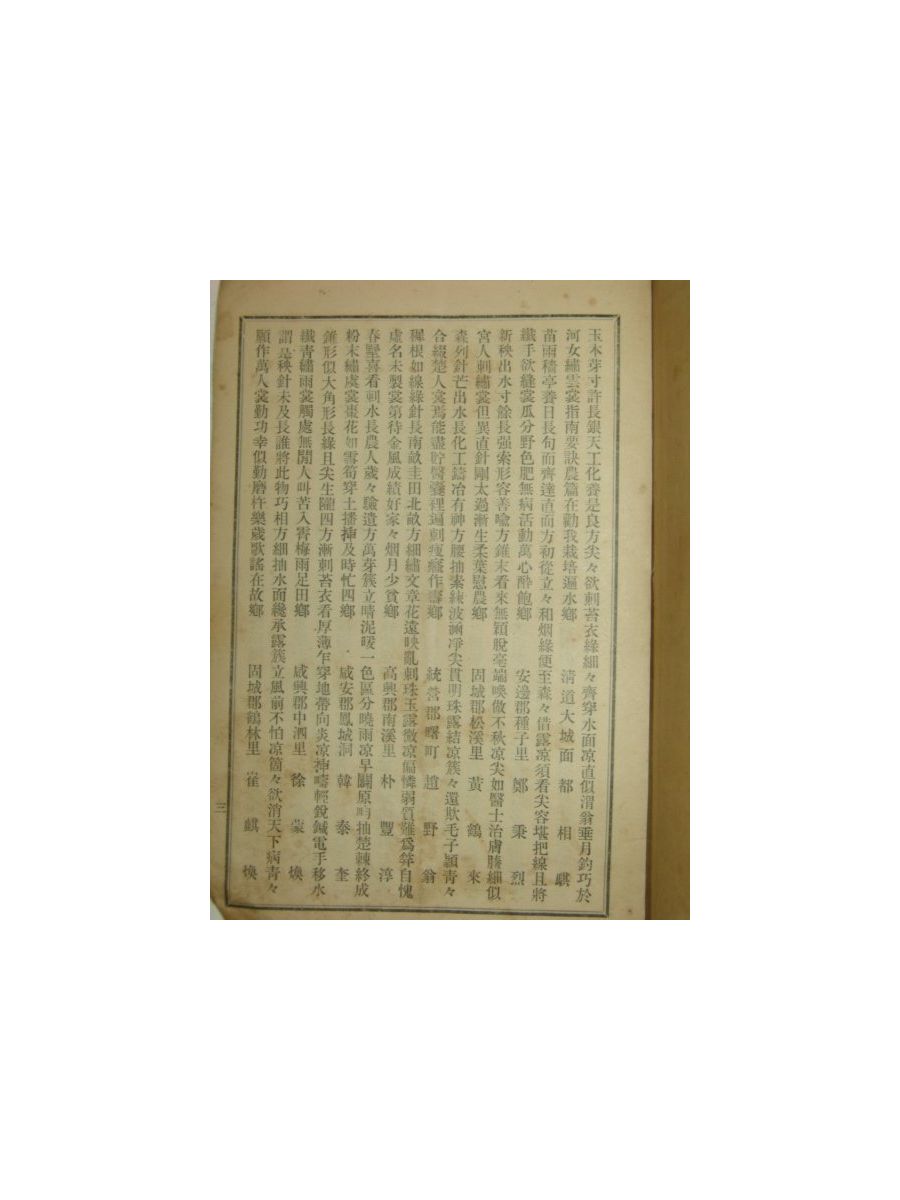 玉本芽寸許長銀天工化養是良方尖々欲刺苔衣綠細々齊穿水面凉直似渭翁垂月釣巧於
河女繡雲裳指南要訣農篇在勸我栽培遍水鄉 清道大城面 都相騏
苗雨穡亭養日長句而齊達直而方初從立々和烟綠便至森々借露凉須看尖容堪把線且將
纖手欲縫裳瓜分野色肥無病活動萬心醉飽鄉 安邊郡種子里 鄭秉烈
新秧出水寸餘長强索形容善喩方錐末看來無穎脫毫端喚做不秋凉尖如醫士治膚勝細似
宮人刺繡裳但異直針剛太過漸生柔葉慰農鄉 固城郡松溪里 黃鶴來
森列針芒出水長化工鑄冶有神方腰抽素練波濔凈尖貫明珠露結凉簇々還欺毛子穎青々
合綴楚人裳焉能盡貯醫囊裡遍刺瘦癃作壽鄉 統營郡曙町 趙野翁
穉根如線綠針長南畝圭田北畝方細繡文章花遠映亂刺珠玉露微凉偏憐弱質難爲笇自愧
虛名未製裳第待金風成績好家々烟月少貧鄉 高興郡南溪里 朴豐淳
春墅喜看刺水長農人歲々驗遺方萬芽簇立晴泥暖一色區分曉雨凉早關原明抽楚棘終成
粉末繡虞裳棗花如雪筍穿土播揷及時忙四鄉 咸安郡鳳城洞 韓泰奎
錐形似大角形長綠且尖生隴四方漸刺苔衣看厚薄乍穿地帶向炎凉揷疇輕銳鍼電手移水
纖青繡雨裳觸處無閒人叫苦入霽梅雨足田鄉 咸興郡中泗里 徐蒙煥
謂是秧針未及長誰將此物巧相方細抽水面纔承露簇立風前不怕凉箇々欲消天下病青々
願作萬人裳勤功幸似勤磨杵樂歲歌謠在故鄉 固城郡鶴林里 崔麒煥
三